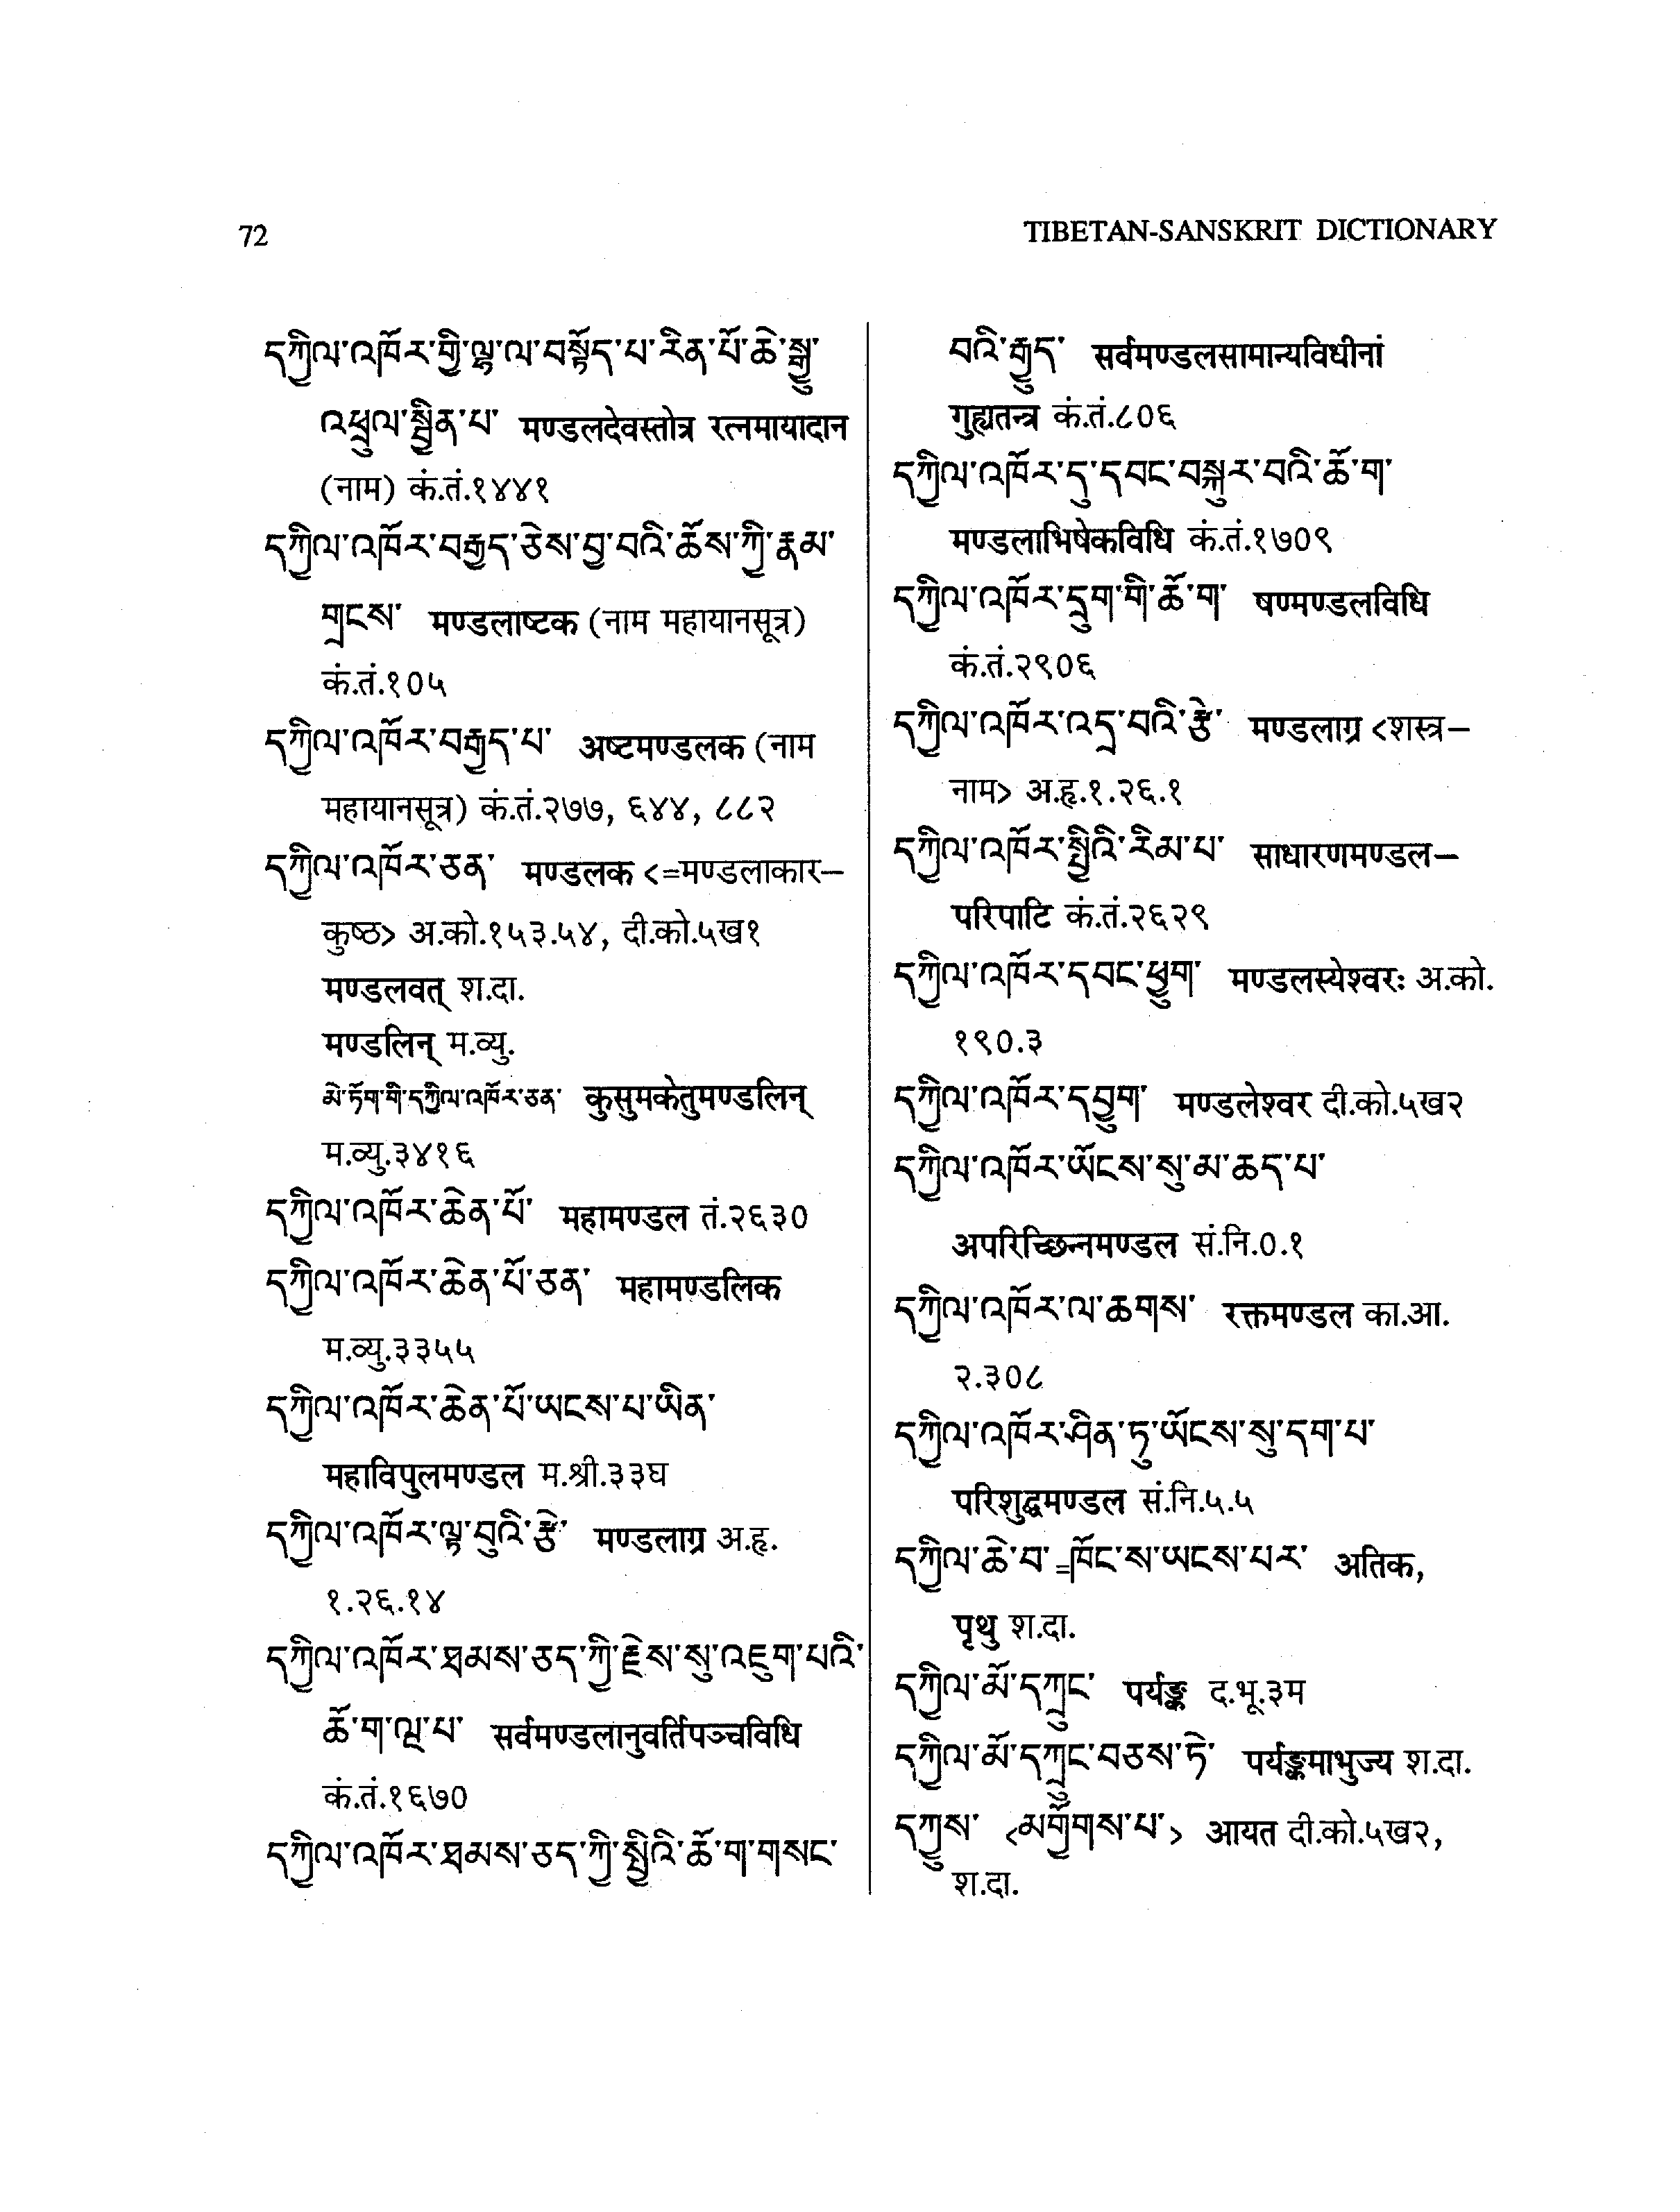 72
TIBETAN-SANSKRIT DICTIONARY
དཀྱིལ་འཁོར་གྱི་ལྷ་ལ་བསྟོད་པ་རིན་པོ་ཆེ་སྒྱུ་
འཕྲུལ་སྦྱིན་པ་ मण्डलदेवस्तोत्र रत्नमायादान
(नाम) कं.तं.१४४१
དཀྱིལ་འཁོར་བརྒྱད་ཅེས་བྱ་བའི་ཆོས་ཀྱི་རྣམ་
གྲངས་ मण्डलाष्टक (नाम महायानसूत्र)
कं.तं.१०५
དཀྱིལ་འཁོར་བརྒྱད་པ་ अष्टमण्डलक (नाम
महायानसूत्र) कं.तं.२७७, ६४४, ८८२
དཀྱིལ་འཁོར་ཅན་ मण्डलक <=मण्डलाकार–
कुष्ठ> अ.को.१५३.५४, दी.को.५ख१
मण्डलवत् श.दा.
मण्डलिन् म.व्यु.
མེ་ཏོག་གི་དཀྱིལ་འཁོར་ཅན་ कुसुमकेतुमण्डलिन्
म.व्यु.३४१६
དཀྱིལ་འཁོར་ཆེན་པོ་ महामण्डल तं.२६३०
དཀྱིལ་འཁོར་ཆེན་པོ་ཅན་ महामण्डलिक
म.व्यु.३३५५
དཀྱིལ་འཁོར་ཆེན་པོ་ཡངས་པ་ཡིན་
महाविपुलमण्डल म.श्री.३३घ
དཀྱིལ་འཁོར་ལྟ་བུའི་རྩེ་ मण्डलाग्र अ.हृ.
१.२६.१४
དཀྱིལ་འཁོར་ཐམས་ཅད་ཀྱི་རྗེས་སུ་འཇུག་པའི་
ཆོ་ག་ལྔ་པ་ सर्वमण्डलानुवर्तिपञ्चविधि
कं.तं.१६७०
དཀྱིལ་འཁོར་ཐམས་ཅད་ཀྱི་སྤྱིའི་ཆོ་ག་གསང་
བའི་རྒྱུད་ सर्वमण्डलसामान्यविधीनां
गुह्यतन्त्र कं.तं.८०६
དཀྱིལ་འཁོར་དུ་དབང་བསྐུར་བའི་ཆོ་ག་
मण्डलाभिषेकविधि कं.तं.१७०९
དཀྱིལ་འཁོར་དྲུག་གི་ཆོ་ག་ षण्मण्डलविधि
कं.तं.२९०६
དཀྱིལ་འཁོར་འདྲ་བའི་རྩེ་ मण्डलाग्र <शस्त्र–
नाम> अ.हृ.१.२६.१
དཀྱིལ་འཁོར་སྤྱིའི་རིམ་པ་ साधारणमण्डल–
परिपाटि कं.तं.२६२९
དཀྱིལ་འཁོར་དབང་ཕྱུག་ मण्डलस्येश्वरः अ.को.
१९०.३
དཀྱིལ་འཁོར་དབྱུག་ मण्डलेश्वर दी.को.५ख२
དཀྱིལ་འཁོར་ཡོངས་སུ་མ་ཆད་པ་
अपरिच्छिन्नमण्डल सं.नि.०.१
དཀྱིལ་འཁོར་ལ་ཆགས་ रक्तमण्डल का.आ.
२.३०८
དཀྱིལ་འཁོར་ཤིན་ཏུ་ཡོངས་སུ་དག་པ་
परिशुद्धमण्डल सं.नि.५.५
དཀྱིལ་ཆེ་བ་=ཁོང་ས་ཡངས་པར་ अतिक,
पृथु श.दा.
དཀྱིལ་མོ་དཀྲུང་ पर्यङ्क द.भू.३म
དཀྱིལ་མོ་དཀྲུང་བཅས་ཏེ་ पर्यङ्कमाभुज्य श.दा.
དཀྱུས་ <མགྱོགས་པ་> आयत दी.को.५ख२,
श.दा.